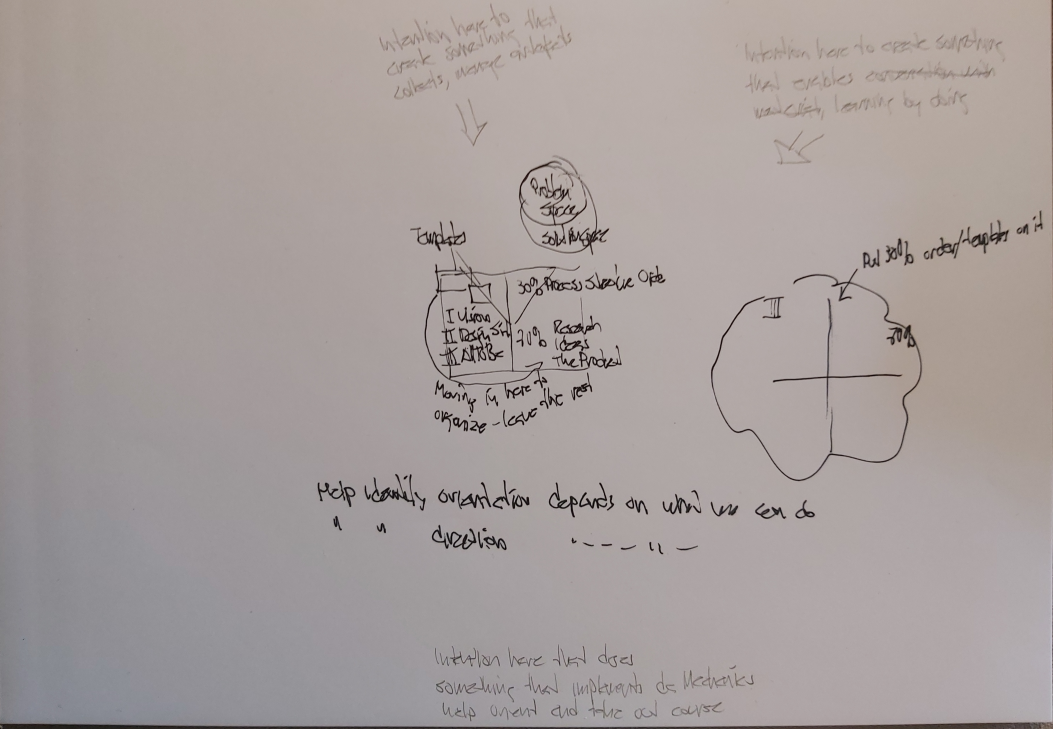 Intention here to
create something that
collects, manage artefacts
Intention here to create something
that enables conversation with
learning by doing
Problem
Space
Templates
Put 30% order/templates on it
30% Process Structure
I Vision
II Design
III
70% Research
Ideas
The Product
III
70%
Moving in here to
organize - leave the rest
Help identify orientation depends on what we can do
" " direction " - - - " -
Intention here that does
something that implements de Mechanics
help orient and take out course